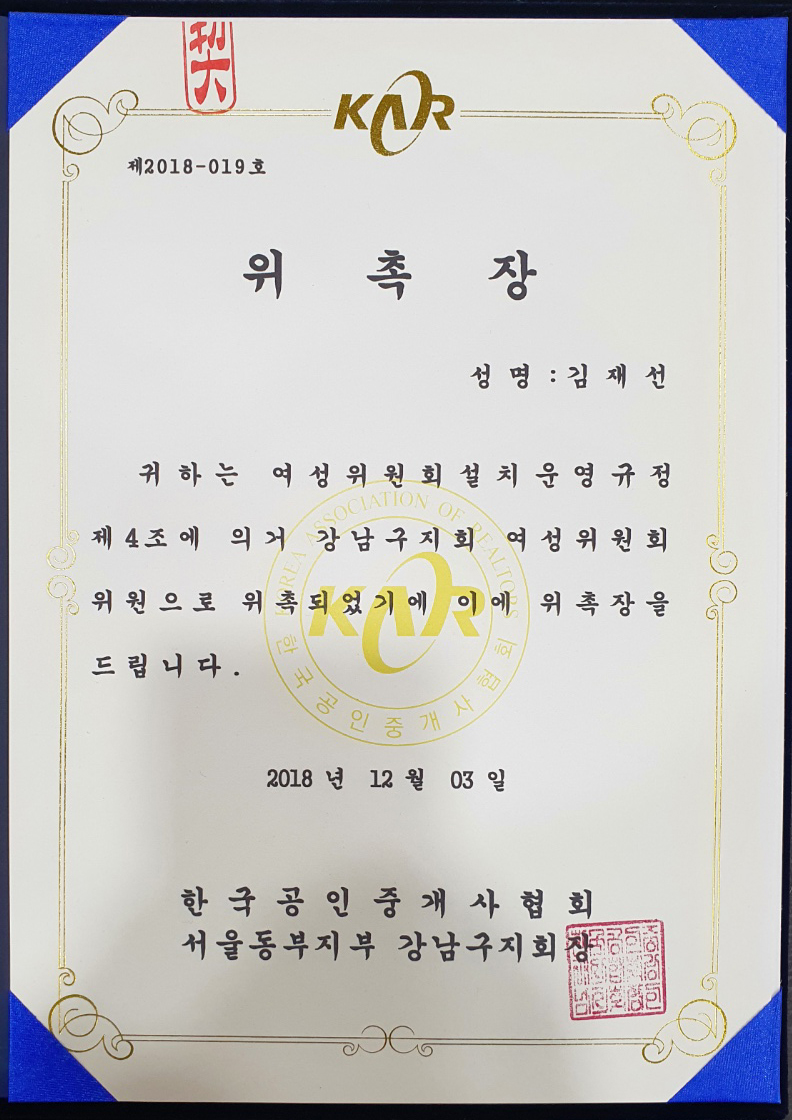 KAR
제2018-019호
위 촉 장
성 명 : 김 재 선
귀 하 는 여성위원회설치운영규정
제4조에 의거 강남구지회 여성위원회
위원으로 위촉되었기에 이에 위촉장을
드립니다.
KOREA ASSOCIATION OF REALTORS
KAR
한국공인중개사협회
2018 년 12 월 03 일
한국공인중개사협회
서울동부지부 강남구지회장